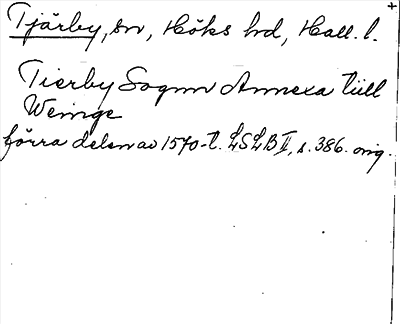 Tjärby, sn, Höks hd, Hall. l.
Tierby Sognn Annexa till
Weinge
förra delen av 1570-t. LSLB II, s. 386. orig.